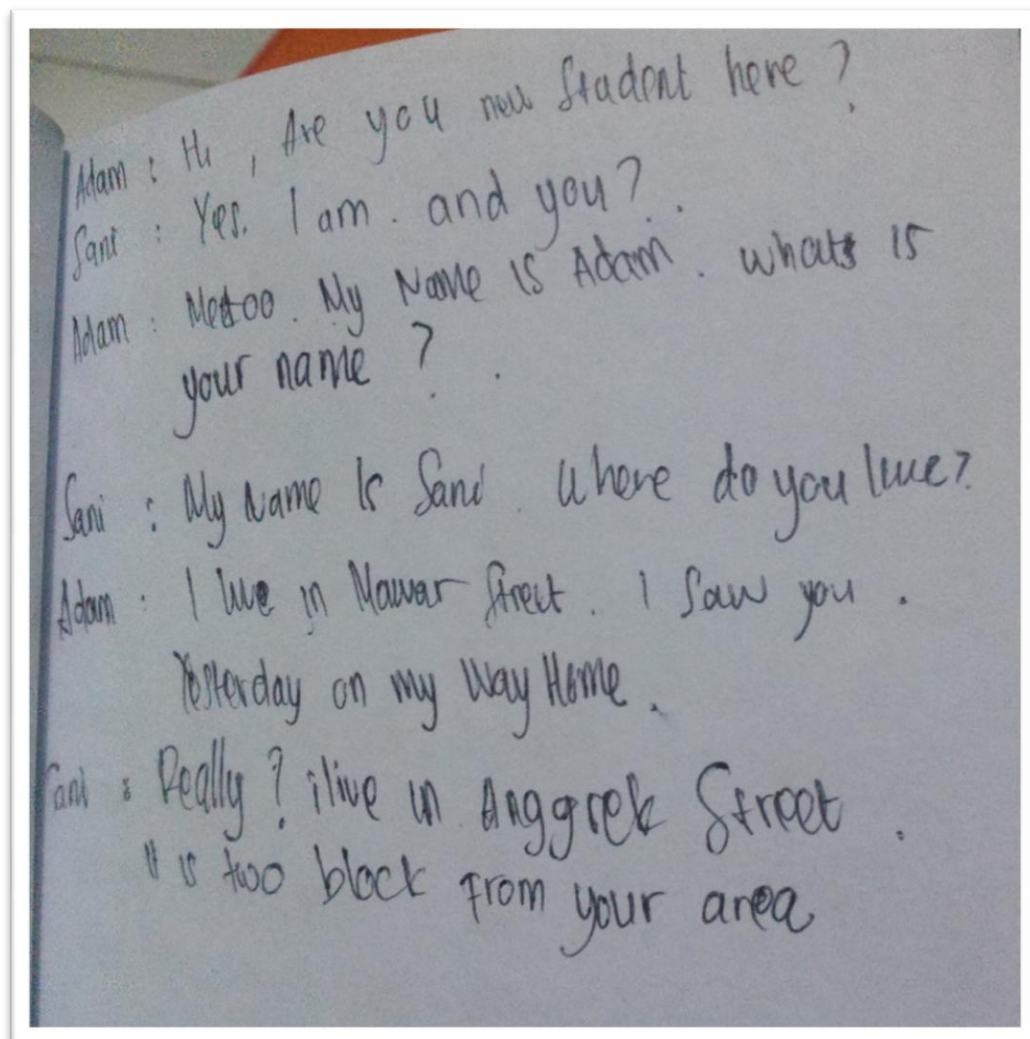 Adam : Hi, Are you new Student here ?
Sani : Yes. I am. and you?.
Adam : Metoo. My Name is Adam. whats is
your name ? .
Sani : My Name Is Sani. Where do you live?
Adam : I live in Mawar Street. I Saw you.
Yesterday on my Way Home.
Sani : Really? i live in Anggrek Street.
It is two block From your area